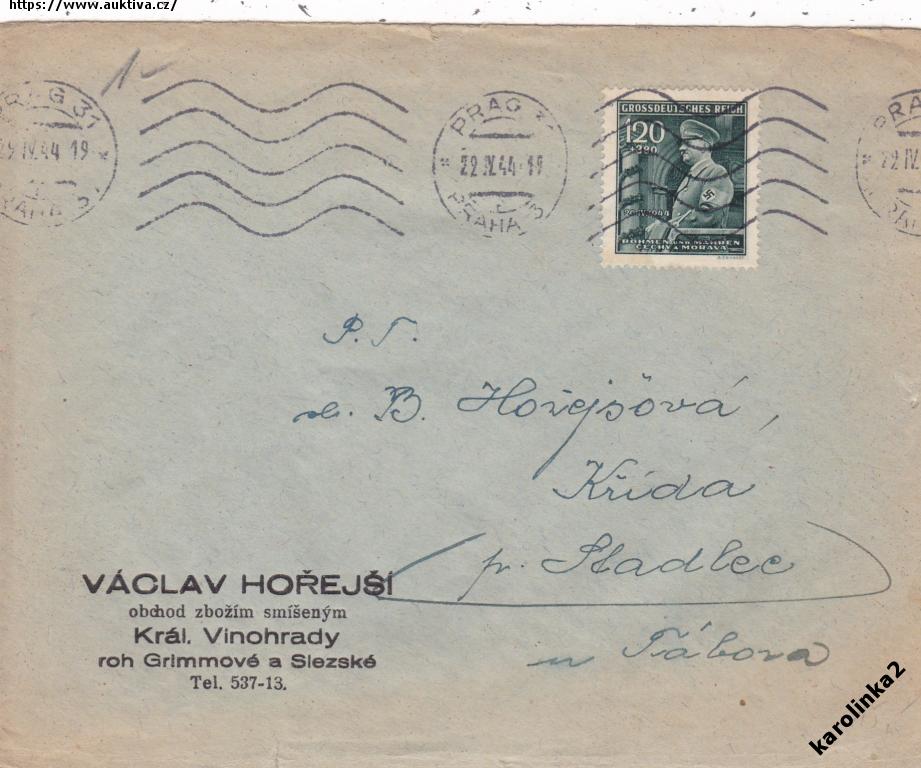 https://www.auktiva.cz/
1-
PRAG 31
29 IV. 44 19
PRAHA 31
PRAG 31
29 IV. 44 - 19
PRAHA 31
GROSSDEUTSCHES REICH
120
+380
20. IV. 1944
BÖHMEN UND MÄHREN
ČECHY A MORAVA
PRA
29 IV
PRA
P. T.
B. Hořejšová,
Křída
p. Stadlec
u Tábora
VÁCLAV HOŘEJŠÍ
obchod zbožím smíšeným
Král. Vinohrady
roh Grimmové a Slezské
Tel. 537-13.
karolinka2